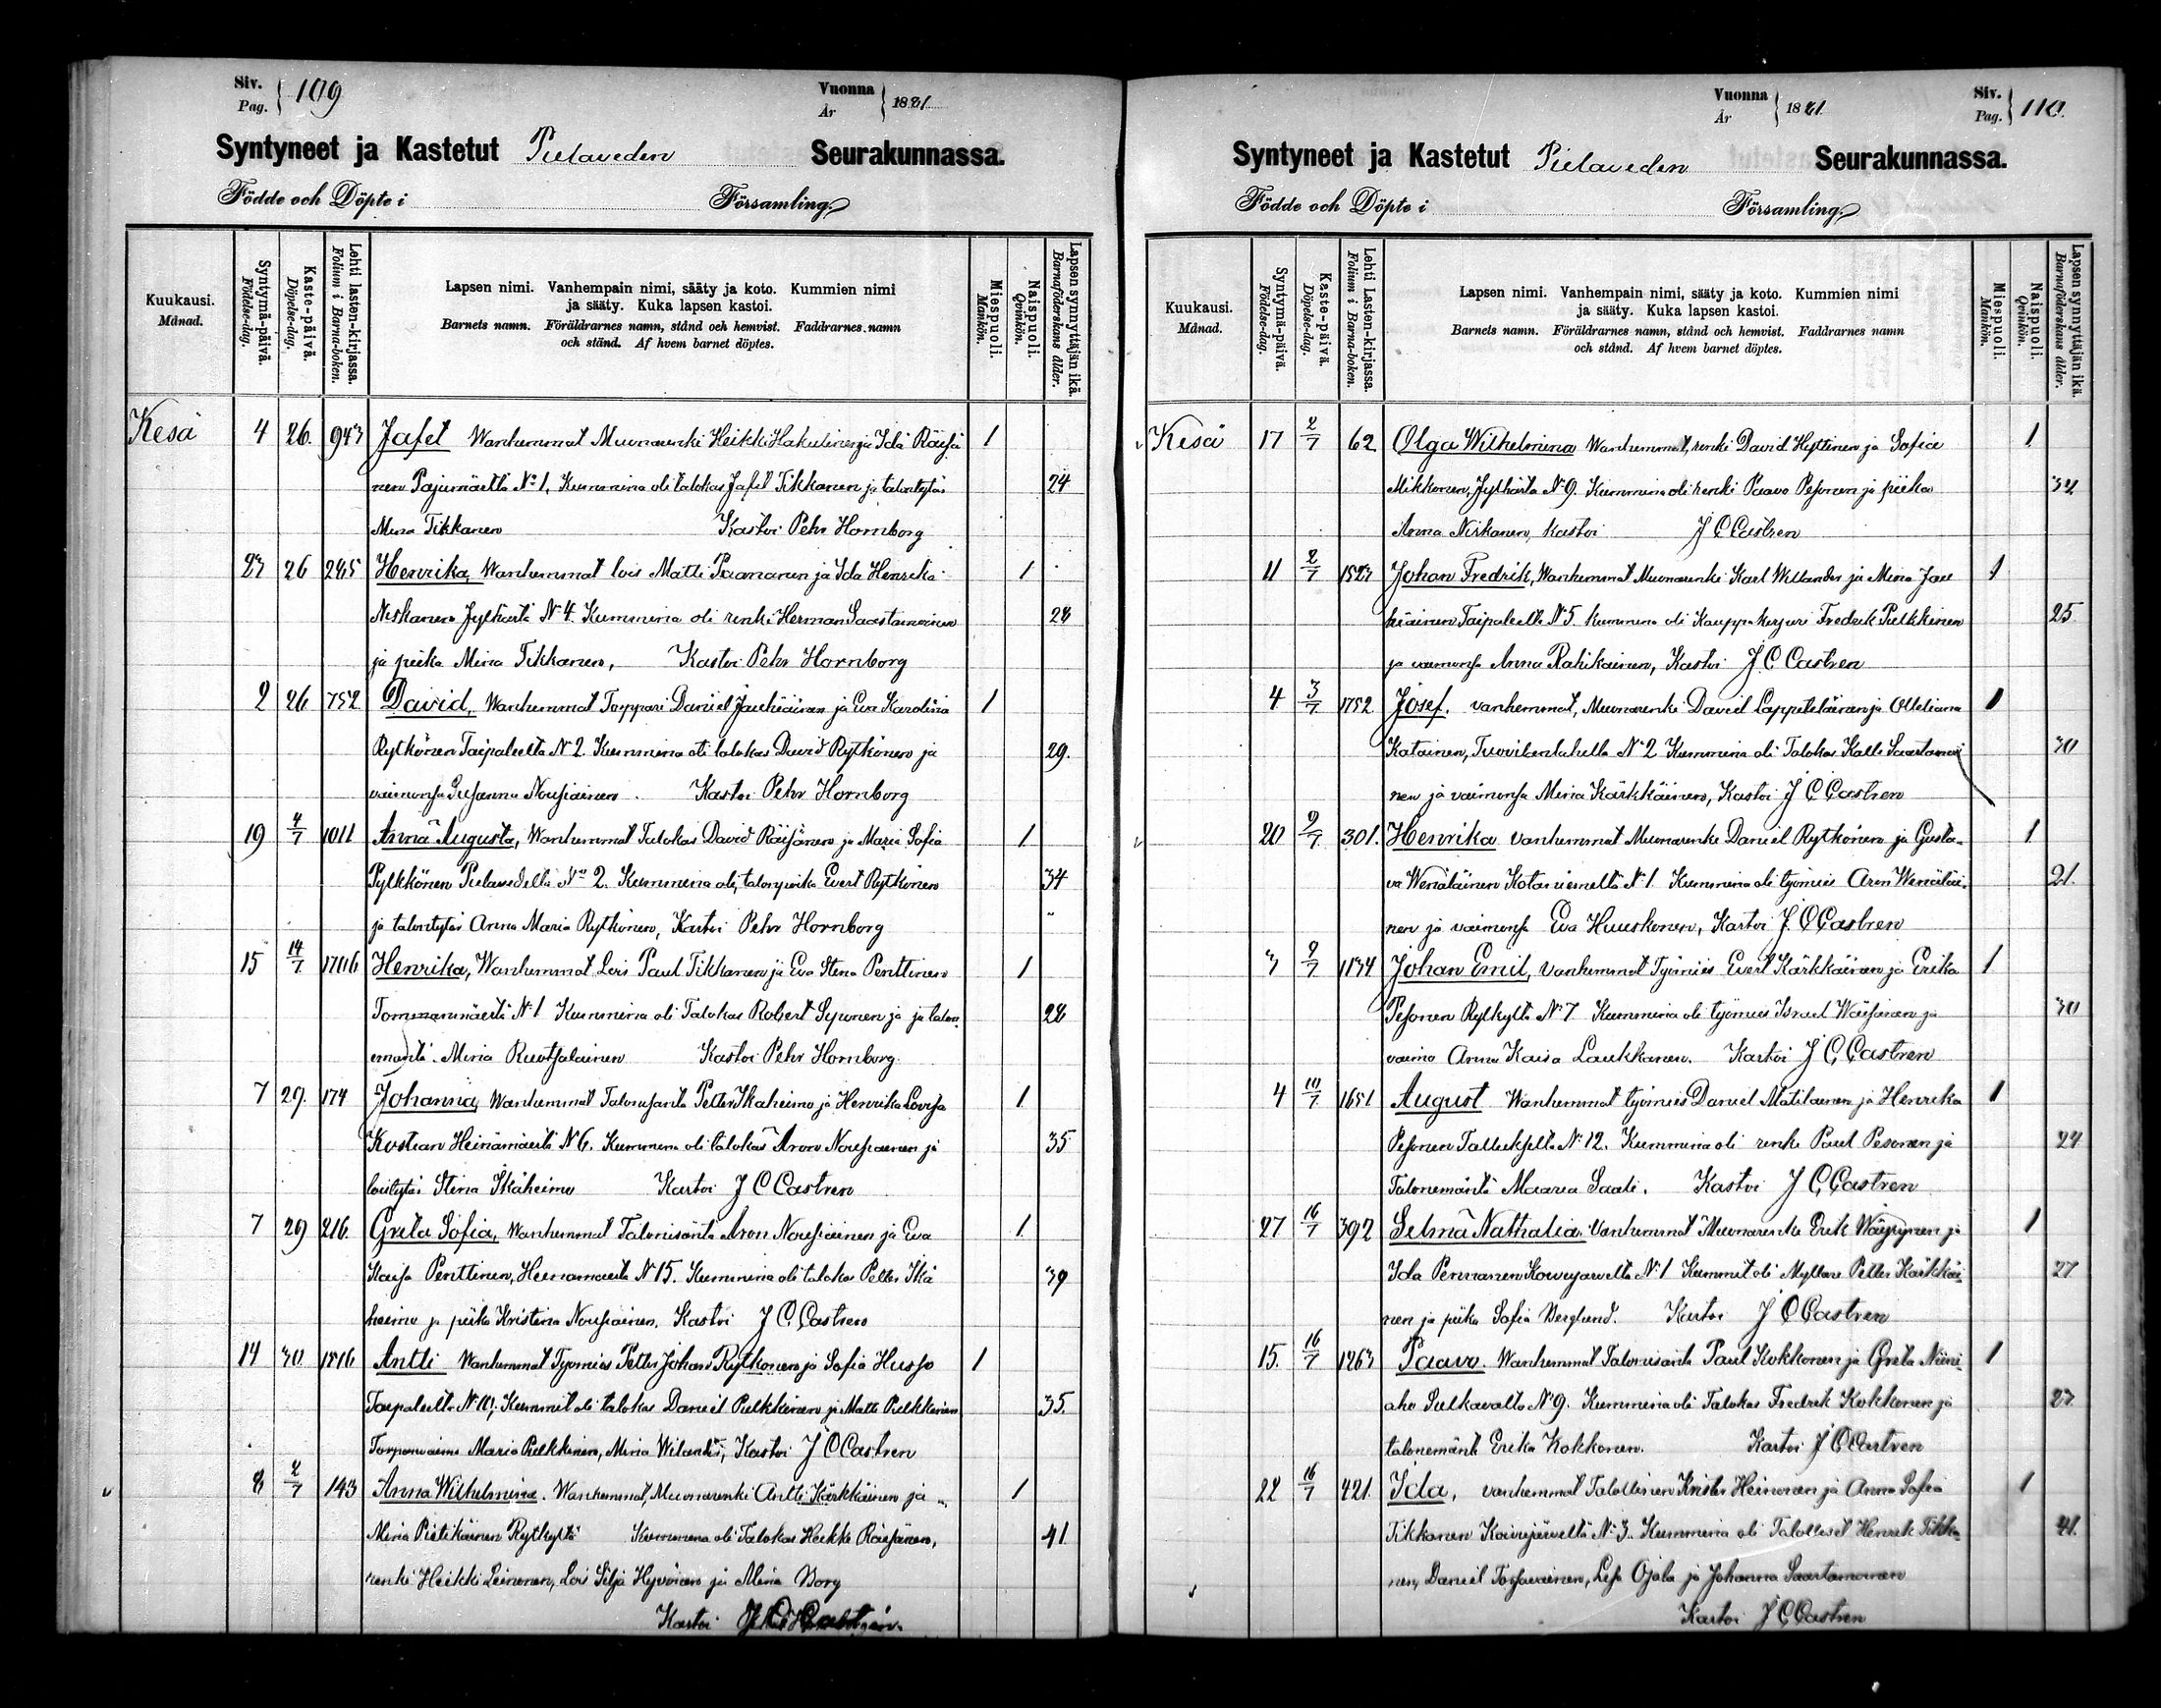 Siv. Pag. 109
Vuonna År 1881.
Syntyneet ja Kastetut Pielaveden Seurakunnassa.
Födde och Döpte i Församling.
Kuukausi. Månad.
Syntymä-päivä. Födelse-dag.
Kaste-päivä. Döpelse-dag.
Lehti lasten-kirjassa. Folium i Barna-boken.
Lapsen nimi. Vanhempain nimi, sääty ja koto. Kummien nimi
ja sääty. Kuka lapsen kastoi.
Barnets namn. Föräldrarnes namn, stånd och hemvist. Faddrarnes namn
och stånd. Af hvem barnet döptes.
Miespuoli. Mankön.
Naispuoli. Qvinkön.
Lapsen synnyttäjän ikä. Barnaföderskans ålder.
Kesä 4 26. 943 Jafet Wanhemmat Muonarenki Heikki Hakulinen ja Ida Räisä 1
nen Pajumäeltä No 1, Kummina oli talokas Jafet Tikkanen ja talontytär 24
Mina Tikkanen Kastoi Pehr Hornborg
23 26 285 Henrika, Wanhemmat lois Matti Paananen ja Ida Henrika 1
Niskanen Jylhästä N 4. Kummina oli renki Herman Saastamoinen 28
ja piika Mina Tikkanen, Kastoi Pehr Hornborg
2 26 752 David, Wanhemmat Torppari Daniel Jauhiainen ja Eva Karolina 1
Rytkönen Taipaleelta N 2. Kummina oli talokas David Rytkönen ja 29.
vaimonsa Susanna Nousiainen. Kastoi Pehr Hornborg
19 4/7 1011 Anna Augusta, Wanhemmat Talokas David Räisänen ja Maria Sofia 1
Pylkkönen Pielavedeltä No 2. Kummina oli, talonpoika Evert Rytkönen 34
ja talontytär Anna Maria Rytkönen, Kastoi Pehr Hornborg
15 14/7 1706 Henrika, Wanhemmat Lois Paul Tikkanen ja Eva Stena Penttinen 1
Tommanmäeltä N 1 Kummina oli Talokas Robert Syvonen ja ja talon 28
emäntä. Miria Ruotsalainen Kastoi Pehr Hornborg.
7 29. 174 Johanna, Wanhemmat Talonisäntä Petter Ikäheimo ja Henrika Lovisa 1
Kostian Heinämäeltä N 6. Kummina oli talokas Aron Nousiainen ja 35
loistytär Stina Ikäheimo Kastoi J C Castren
7 29 216. Greta Sofia, Wanhemmat Talonisäntä Aron Nousiainen ja Eva 1
Kaisa Penttinen, Heinämäeltä N 15. Kummina oli talokas Petter Ikä 39
heimo ja piika Kristina Nousiainen. Kastoi J C Castren
14 30 1516 Antti Wanhemmat Työmies Petter Johan Rytkönen ja Sofia Husso 1
Taipaleelta N 10; Kummit oli talokas Daniel Pulkkinen ja Matti Pulkkinen 35.
Torpanvaimo Maria Pulkkinen, Miria Wilander, Kastoi J C Castren
8 2/7 143 Anna Wilhelmina. Wanhemmat, Muonarenki Antti Kärkkäinen ja 1
Miria Pietikäinen Rytkyltä Kummina oli Talokas Heikki Räisänen, 41
renki Heikki Leinonen, Lois Silja Hyvönen ja Miria Borg
Kastoi
Siv. Pag. 110.
Vuonna År 1881.
Syntyneet ja Kastetut Pielaveden Seurakunnassa.
Födde och Döpte i Församling.
Kuukausi. Månad.
Syntymä-päivä. Födelse-dag.
Kaste-päivä. Döpelse-dag.
Lehti Lasten-kirjassa. Folium i Barna-boken.
Lapsen nimi. Vanhempain nimi, sääty ja koto. Kummien nimi
ja sääty. Kuka lapsen kastoi.
Barnets namn. Föräldrarnes namn, stånd och hemvist. Faddrarnes namn
och stånd. Af hvem barnet döptes.
Miespuoli. Mankön.
Naispuoli. Qvinkön.
Lapsen synnyttäjän ikä. Barnaföderskans ålder.
Kesä 17 2/7 62 Olga Wilhelmina Wanhemmat, renki David Hyttinen ja Sofia 1
Mikkonen, Jylhästä N 9. Kummina oli renki Paavo Pesonen ja piika
Anna Niskanen, Kastoi J C Castren
11 2/7 1523 Johan Fredrik, Wanhemmat Muonarenki Karl Willander ja Mina Jau 1
hiainen Taipaleelta N 5 Kummina oli Kauppakirjuri Fredrik Pulkkinen 25
ja vaimonsa Anna Rahikainen, Kastoi J C Castren
4 3/7 1752. Josef. vanhemmat, Muonarenki David Lappeteläinen ja Ottiliana 1
Katainen, Tuovilanlahelta N 2 Kummina oli Talokas Kalle Saastamoi 30
nen ja vaimonsa Miria Kärkkäinen, Kastoi J C Castren
20 9/7 301. Henrika vanhemmat Muonarenki Daniel Rytkönen ja Gusta- 1
va Wenäläinen Kotaniemeltä N 1. Kummina oli työmies Aron Wenäläi- 21.
nen ja vaimonsa Eva Huuskonen, Kastoi J. C Castren
3 9/7 1134 Johan Emil, Vanhemmat Työmies Evert Kärkkäinen ja Erika 1
Pesonen Rytkyltä N 7 Kummina oli työmies Israel Wäisänen ja 30
vaimo Anna Kaisa Laukkanen. Kastoi J C Castren
4 10/7 1651 August Wanhemmat työmies Daniel Matilainen ja Henrika 1
Pesonen Tallukselta N 12. Kummina oli renki Paul Pesonen ja 24
Talonemäntä Maaria Saali. Kastoi J C Castren
27 16/7 392 Selma Nathalia. Vanhemmat Muonarenki Erik Wäyrynen ja 1
Ida Pennanen Koivujärveltä N 1 Kummit oli Mylläri Petter Kärkkäi- 27
nen ja piika Sofia Berglund. Kastoi J C Castren
15. 16/7 1263 Paavo. Wanhemmat Talonisäntä Paul Kokkonen ja Greta Niini 1
aho Sulkavalta N 9. Kummina oli Talokas Fredrik Kokkonen ja 27
talonemänt Erika Kokkonen. Kastoi J C Castren
22 16/7 421. Ida, vanhemmat Talollinen Krister Heinonen ja Anna Sofia 1
Tikkanen Koivujärveltä N 3. Kummina oli Talolliset Henrik Tikka- 41.
nen, Daniel Lisa Ojala ja Johanna Saastamoinen
Kastoi J C Castren